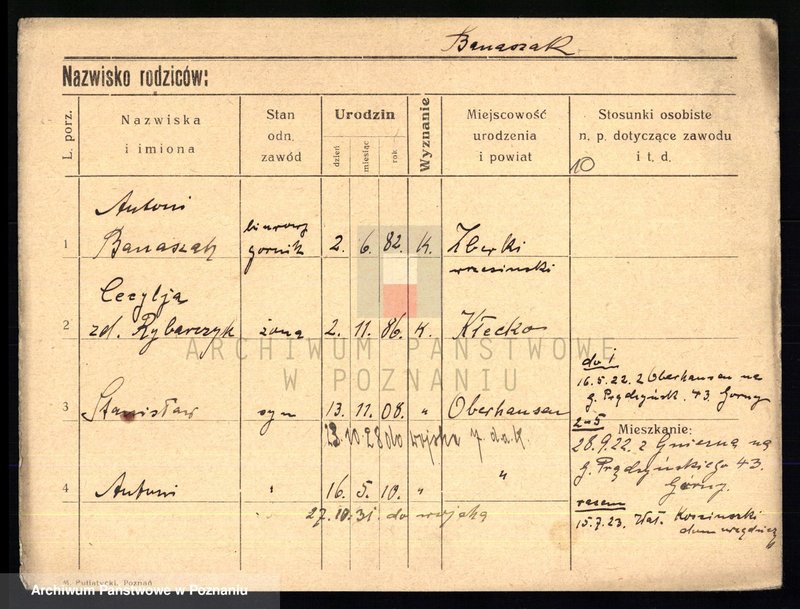 Banaszak
Nazwisko rodziców:
L. porz.
Nazwiska
i imiona
Stan
odn.
zawód
Urodzin
dzień
miesiąc
rok
Wyznanie
Miejscowość
urodzenia
i powiat
Stosunki osobiste
n. p. dotyczące zawodu
i t. d.
10
1
Antoni
Banaszak
biurowy
gornik
2. 6. 82. K.
wrzesinski
2
Cecylja
zd. Rybarczyk
żona
2. 11. 86. K.
Kłecko
3
Stanisław
syn
13. 11. 08. "
Oberhausen
13.10.28 do wojska 7. d.a.k.
4
Antoni
"
16. 5. 10. "
"
27.10.31. do wojska
do 1
16.5.22. z Oberhausen na
g. Prądzyńsk. 43. Gorny
2-5
Mieszkanie:
28.9.22. z Gniezna na
g. Prądzyńskiego 43.
Gorny.
razem
15.7.23.
ARCHIWUM PAŃSTWOWE
W POZNANIU
M. Putiatycki, Poznań
Archiwum Państwowe w Poznaniu